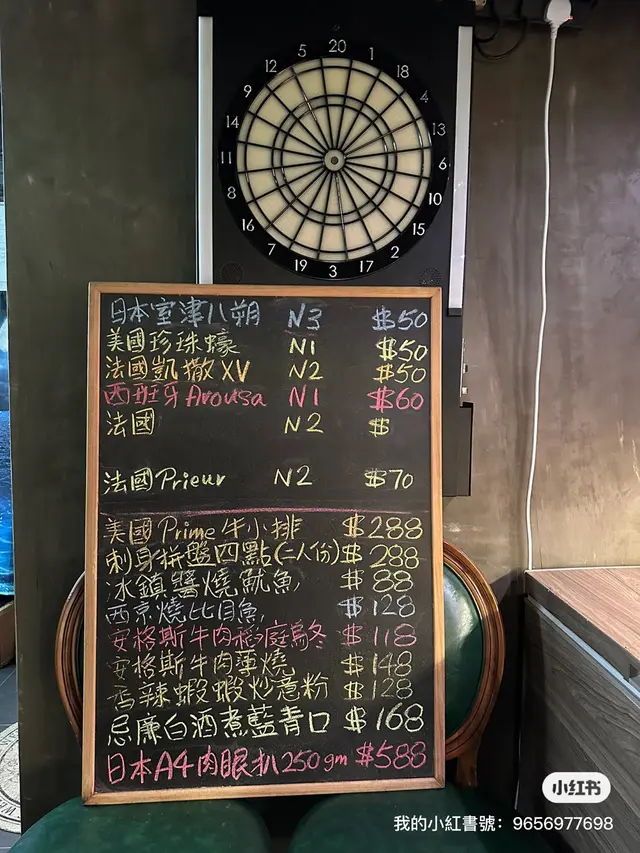 5 20 1
12 18
9 4
14 13
11 6
8 10
16 15
7 2
19 3 17
日本室津八朔 N3 $50
美國珍珠蠔 N1 $50
法國凱撒XV N2 $50
西班牙Arousa N1 $60
法國 N2 $
法國Prieur N2 $70
美國Prime牛小排 $288
刺身拼盤四點(二人份) $288
冰鎮醬燒魷魚 $88
西京燒比目魚 $128
安格斯牛肉稻庭烏冬 $118
安格斯牛肉薄燒 $148
香辣蝦蝦炒意粉 $128
忌廉白酒煮藍青口 $168
日本A4肉眼扒 250gm $588
小红书
我的小紅書號：9656977698